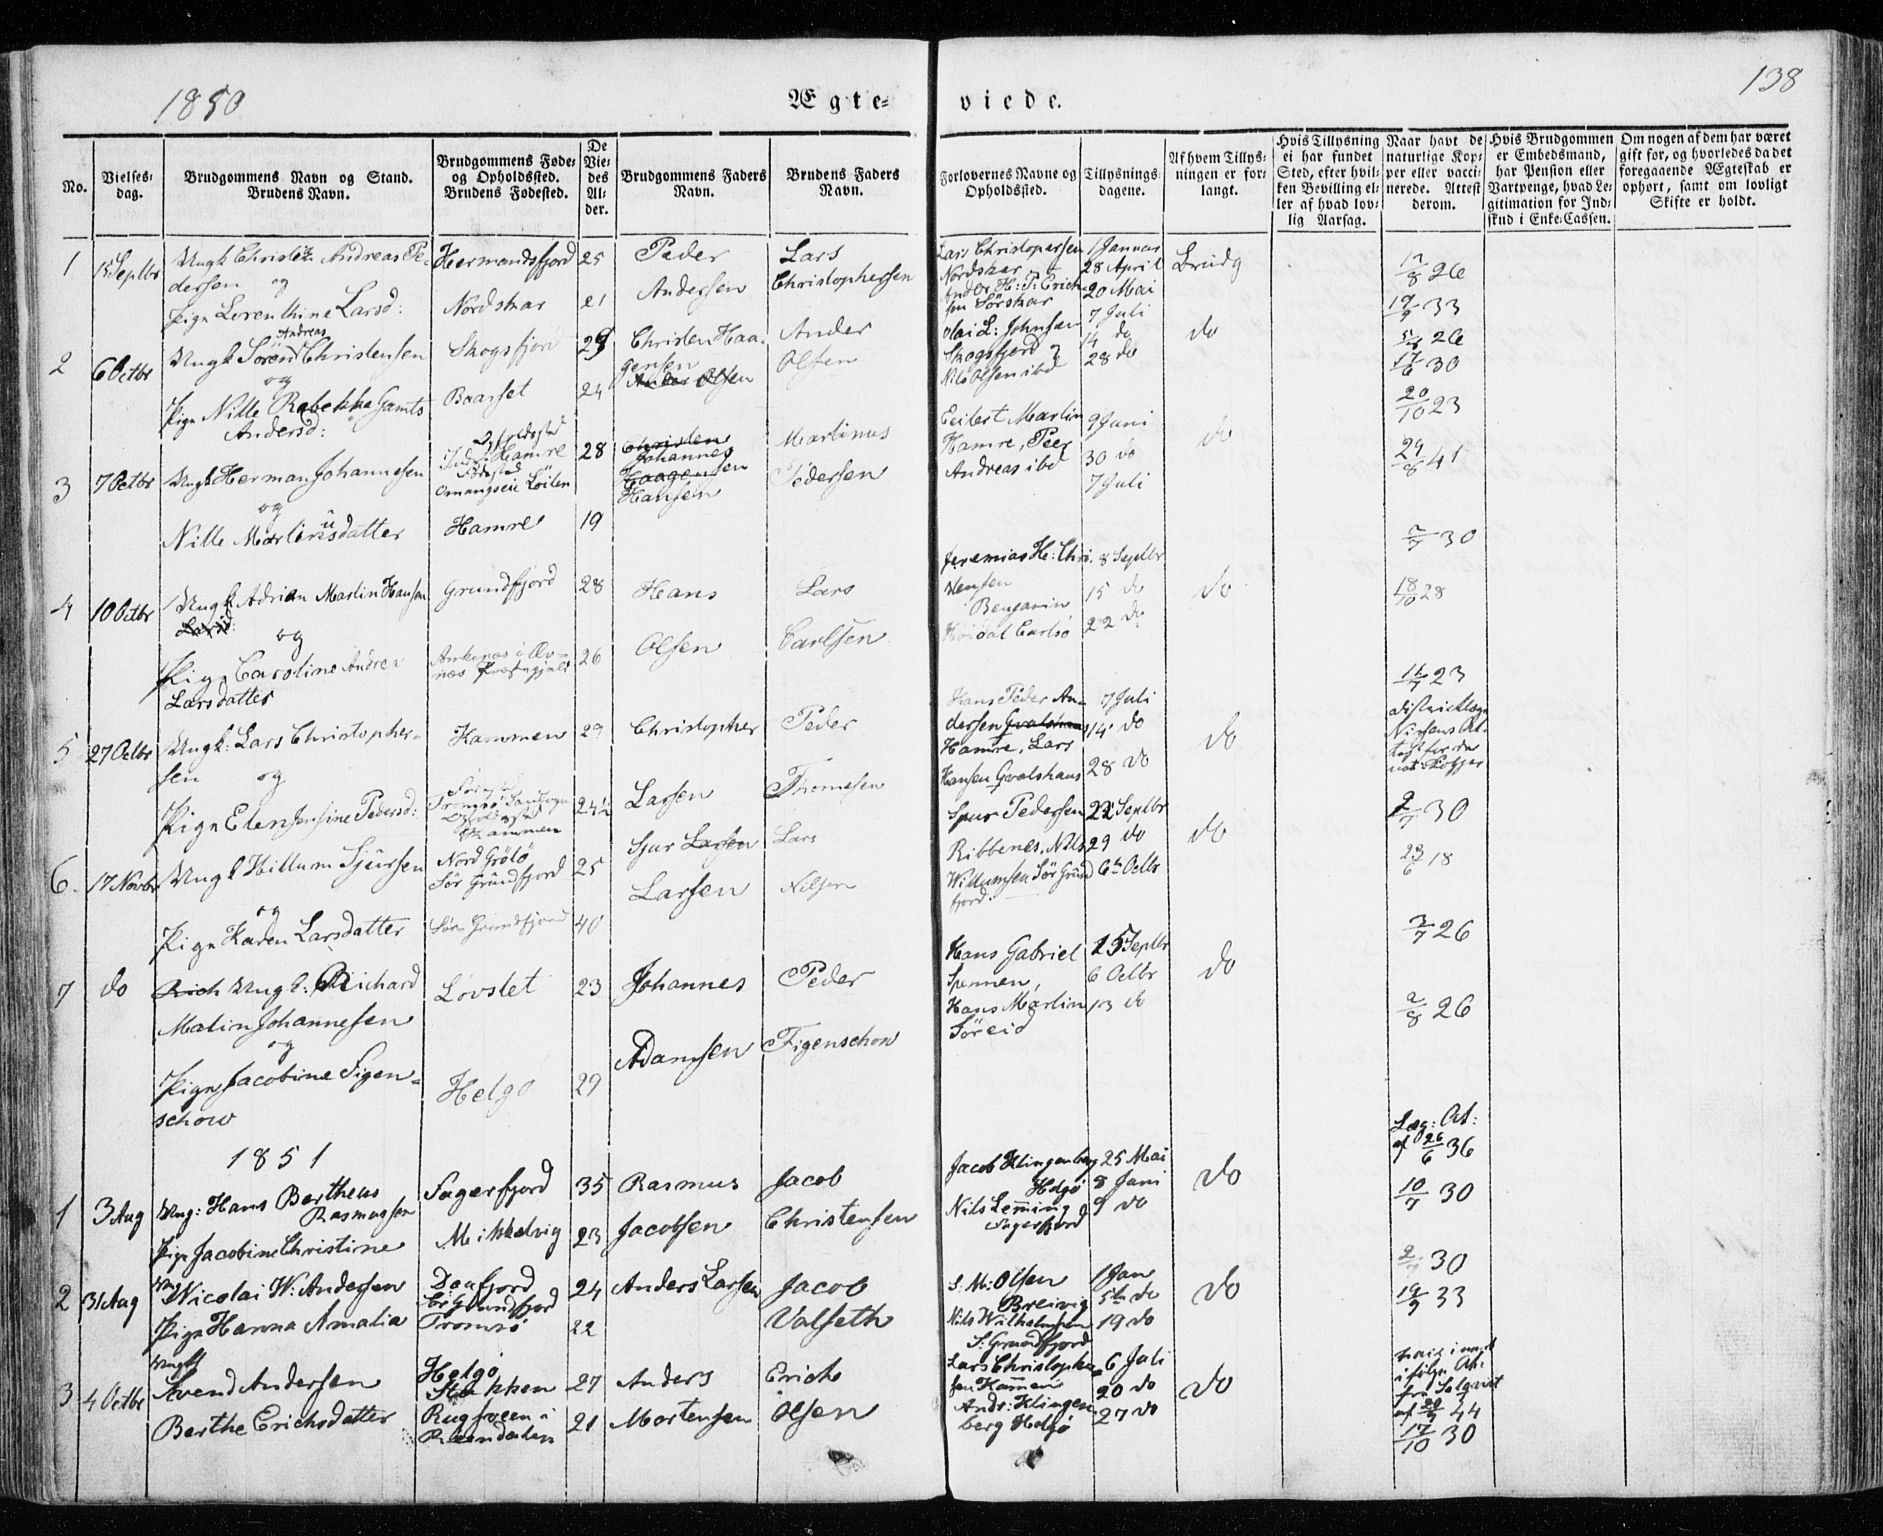 1850
Ægte-
viede.
138
No.
Vielses-
dag.
Brudgommens Navn og Stand.
Brudens Navn.
Brudgommens Føde-
og Opholdssted.
Brudens Fødested.
De
Vie-
des
Al-
der.
Brudgommens Faders
Navn.
Brudens Faders
Navn.
Forlovernes Navne og
Opholdssted.
Tillysnings-
dagene.
Af hvem Tillys-
ningen er for-
langt.
Hvis Tillysning
ei har fundet
Sted, efter hvil-
ken Bevilling el-
ler af hvad lov-
lig Aarsag.
Naar havt de
naturlige Kop-
per eller vacci-
nerede. Attest
derom.
Hvis Brudgommen
er Embedsmand,
har Pension eller
Vartpenge, hvad Le-
gitimation for Ind-
skud i Enke-Cassen.
Om nogen af dem har været
gift før, og hvorledes da det
foregaaende Ægteskab er
ophørt, samt om lovligt
Skifte er holdt.
1
15 Septbr
Ungk Christen Andreas Pe-
dersen og
Pige Lorenthine Larsd:
Hermandsfjord
Nordskar
25
21
Peder
Andersen
Lars
Christophersen
Lars Christopersen
Nordskar
Ander H: P: Erich-
sen Sørskar
1 Januar
28 April
20 Mai
Brudg
8 26
33
2
6 Octbr
Andreas
Ungk Sørend Christensen
og
Pige Nille Rebekka Gamts
Andersd:
Skogsfjord
Baarset
29
24
Christen Haa-
gensen
Ander Olsen
Ander
Olsen
Olai L: Johnsen
Skogsfjord
Nils Olsen ibd
7 Juli
14 do
28 do
do
26
17/6 30
3
7 Octbr
Ungk Herman Johannesen
og
Nille Martinusdatter
Opholdssted
Hamre
Fødested
Løiten
Hamre
28
19
Christen
Johannes
Haagensen
Hansen
Martinus
Pedersen
Eilert Martin
Hamre, Peer
Andreas ibd
9 Juni
30 do
7 Juli
do
20/10 23
29/8 41
4
10 Octbr
Ungk Adrian Martin Hansen
Larsd:
og
Pige Caroline Andrea
Larsdatter
Grundfjord
Ankenas i Ov-
næs Præstegjeld
28
26
Hans
Olsen
Lars
Carlsen
Jeremias H: Chri-
stensen
Benjamin
Carlsø
8 Septbr
15 do
22 do
do
7 30
18/10 28
5
27 Octbr
Ungk: Lars Christopher-
sen og
Pige Elen Jensine Pedersd:
Kammen
Kammen
29
24½
Christopher
Larsen
Peder
Thomesen
Hans Peder An-
dersen
Hamre, Lars
Hansen Gvalshaus
7 Juli
14 do
28 do
do
7 23
6
17 Novbr
Ungk Hillum Sjursen
og
Pige Karen Larsdatter
Nord Grølø
Sør Grundfjord
Sør Grundfjord
25
40
Sjur Larsen
Larsen
Lars
Nilsen
Sjur Pedersen
Ribbenes, Nils
Willumsen Sør Grund
fjord.
22 Septbr
29 do
6te Octbr
do
7 30
18
7
do
Rich Ungk: Richard
Matin Johannesen
og
Pige Jacobine Figen-
schow
Løvslet
Helgø
23
29
Johannes
Adamsen
Peder
Figenschow
Hans Gabriel
Spennen,
Hans Martin
Søreid
15 Septbr
6 Octbr
13 do
do
3/7 26
2/8 26
1851
1
3 Aug
Ung: Hans Bertheus
Rasmussen
Pige Jacobine Christine
Sagerfjord
Mikkelvig
35
23
Rasmus
Jacobsen
Jacob
Christensen
Jacob Klingenberg
Helgø
Nils Leming
Sagerfjord
25 Mai
8 Juni
9 do
do
Læg: At:
af 26/6 36
10/7 30
2
31 Aug
Ung Nicolai W: Andersen
Pige Hanna Amalia
Daafjord
Sør Grundfjord
Tromsø
24
22
Anders Larsen
Jacob
Valseth
S. M: Olsen
Breivig
Nils Wilhelmsen
S: Grundfjord
1 Jan
5te do
19 do
do
30
19/9 33
3
4 Octbr
Ungk
Svend Andersen
Berthe Erichsdatter
Helgø
Stakken
27
21
Anders
Mortensen
Erich
Olsen
Lars Christopher
sen Kammen
Andr: Klingen-
berg Helgø
6 Juli
20 do
27 do
do
44
17/10 30